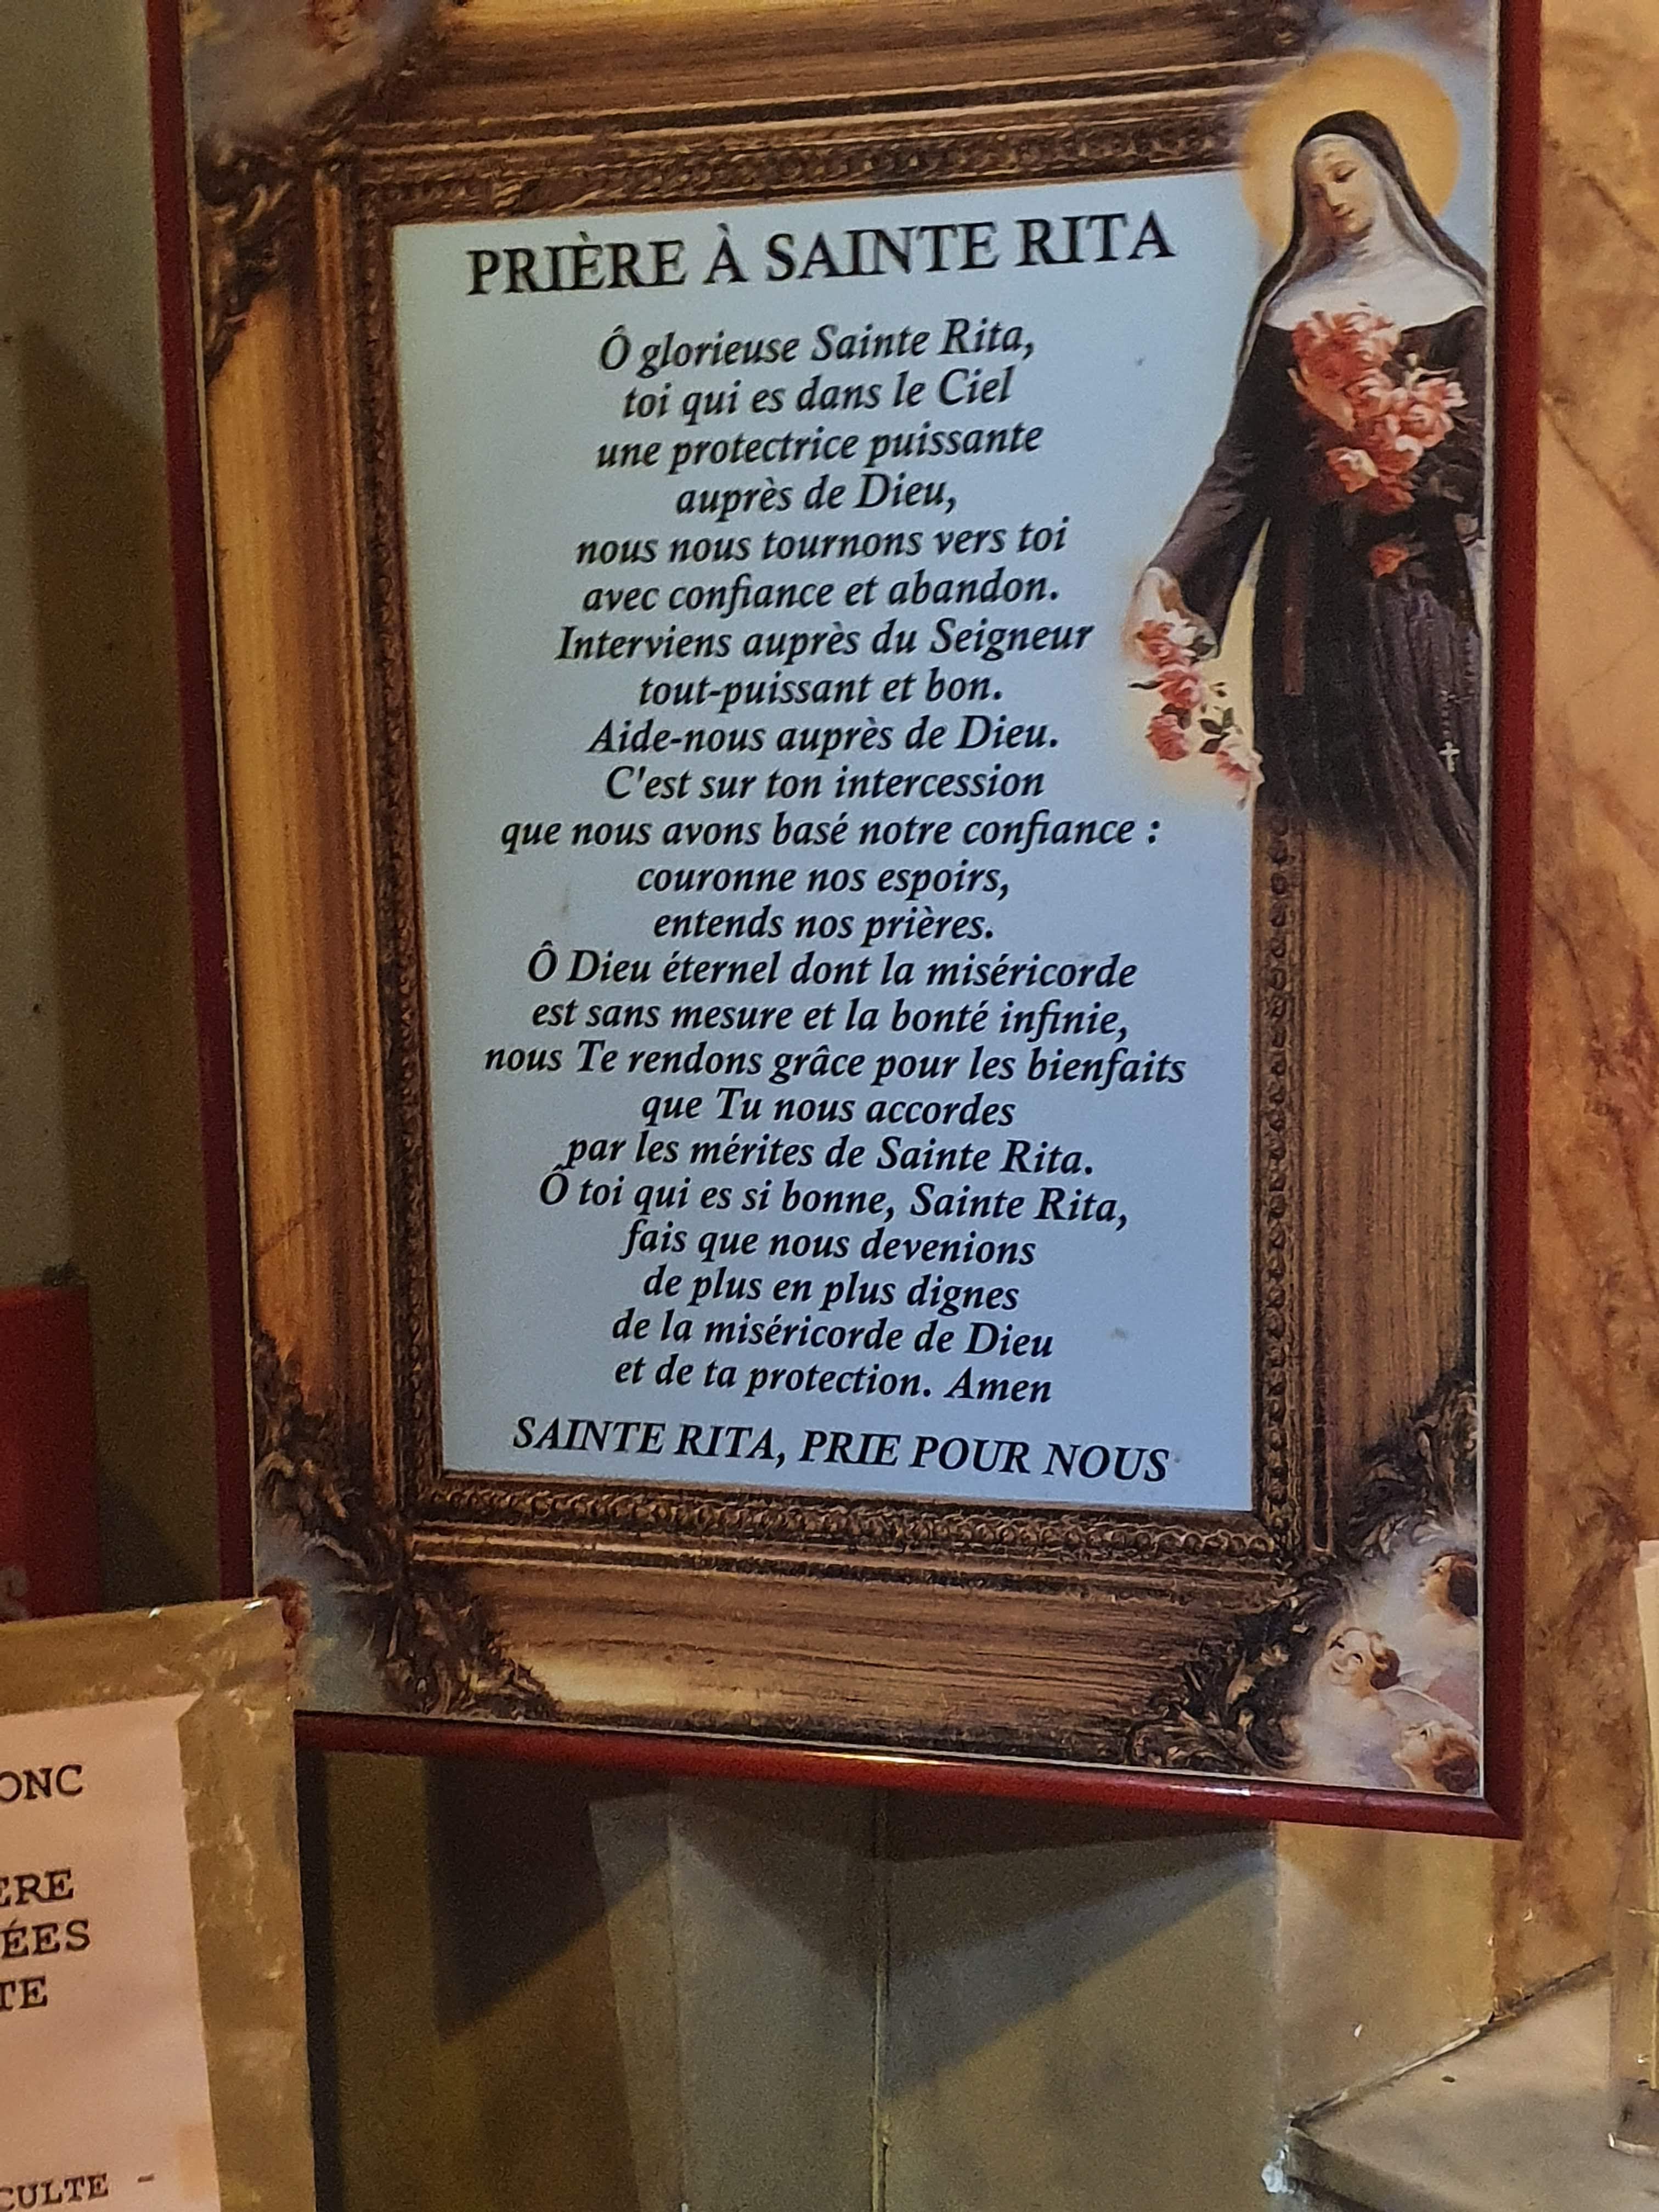 PRIÈRE À SAINTE RITA
Ô glorieuse Sainte Rita,
toi qui es dans le Ciel
une protectrice puissante
auprès de Dieu,
nous nous tournons vers toi
avec confiance et abandon.
Interviens auprès du Seigneur
tout-puissant et bon.
Aide-nous auprès de Dieu.
C'est sur ton intercession
que nous avons basé notre confiance :
couronne nos espoirs,
entends nos prières.
Ô Dieu éternel dont la miséricorde
est sans mesure et la bonté infinie,
nous Te rendons grâce pour les bienfaits
que Tu nous accordes
par les mérites de Sainte Rita.
Ô toi qui es si bonne, Sainte Rita,
fais que nous devenions
de plus en plus dignes
de la miséricorde de Dieu
et de ta protection. Amen
SAINTE RITA, PRIE POUR NOUS
ONC
ÈRE
ÉES
TE
CULTE -